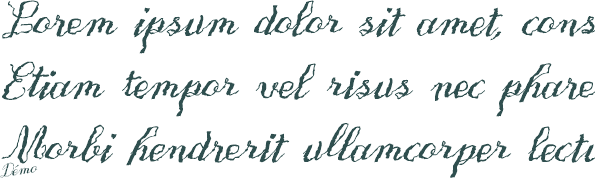 Lorem ipsum dolor sit amet, cons
Etiam tempor vel risus nec phare
Morbi hendrerit ullamcorper lectu
Démo